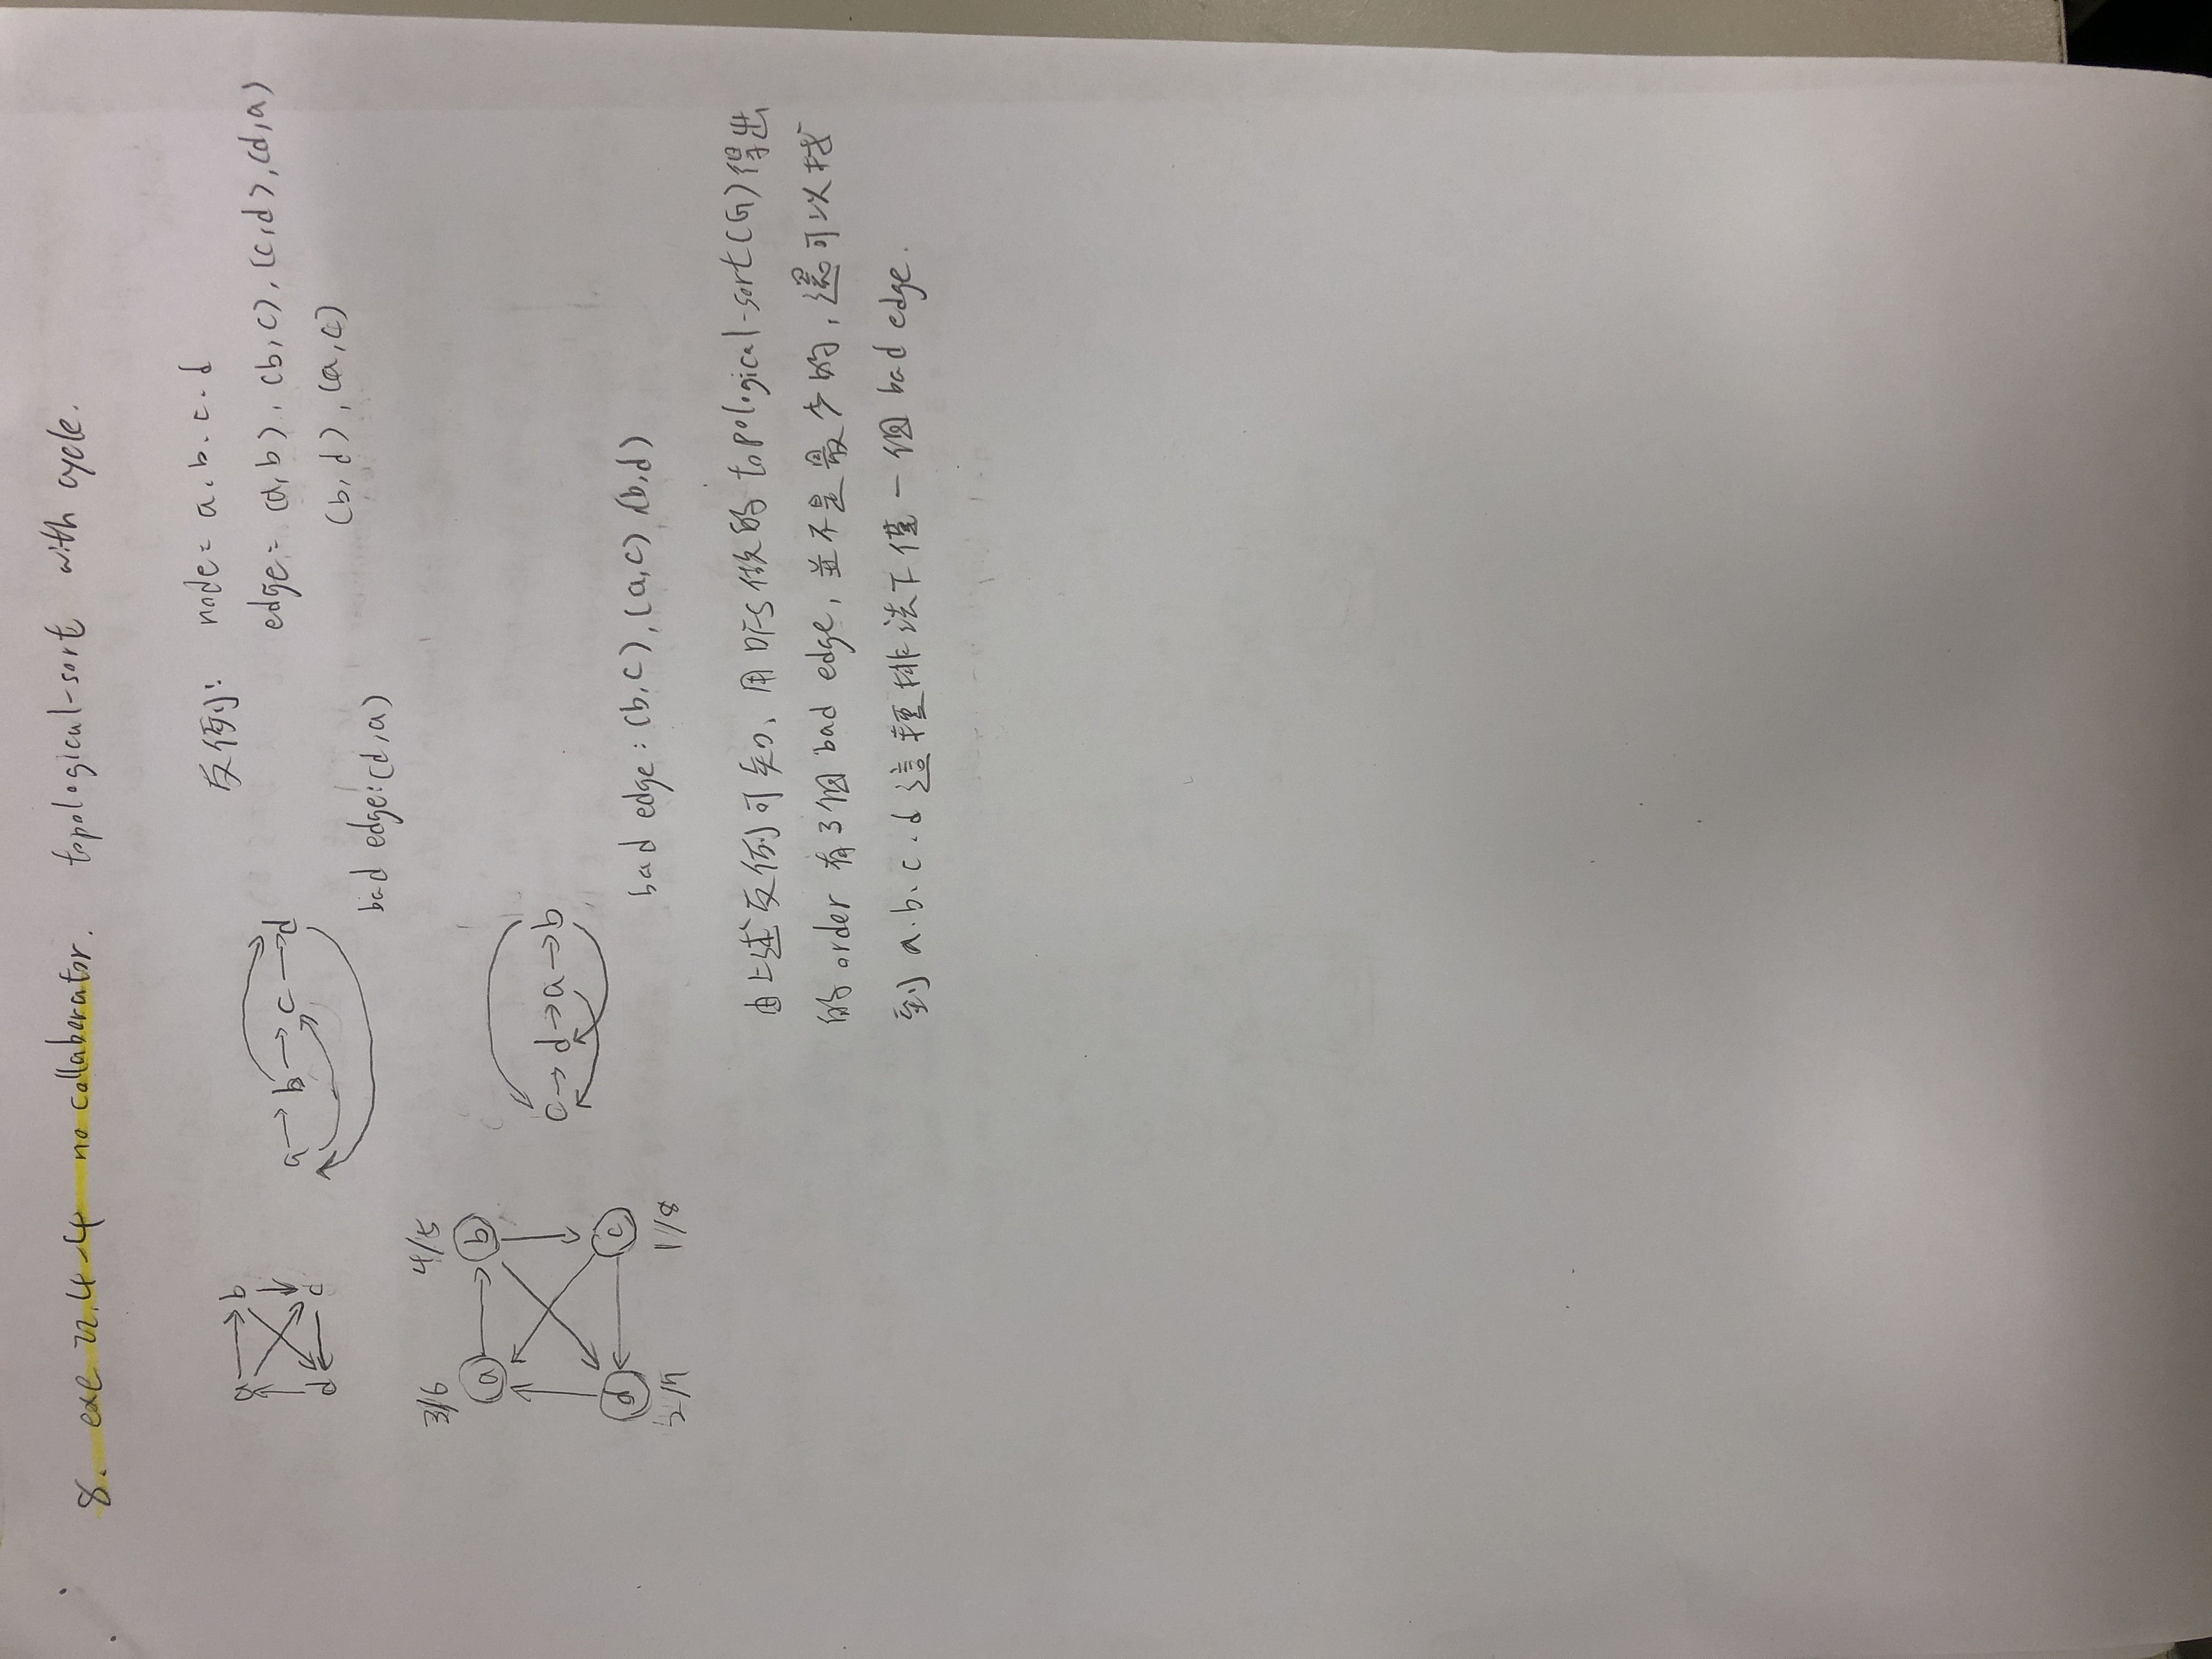 8. exe 22.4-4 no collaborator. topological-sort with cycle.
反例: node = a.b.c.d
edge = (a,b), (b,c), (c,d), (d,a)
(b,d), (a,c)
a b
d c
a b c d
bad edge:(d,a)
3/6 4/5
a b
d c
2/7 1/8
c d a b
bad edge: (b,c), (a,c) (b,d)
由上述反例可知、用DFS做的topological-sort(G)得出
的order有3個bad edge, 並不是最少的, 還可以找
到a.b.c.d這種排法下僅一個bad edge.